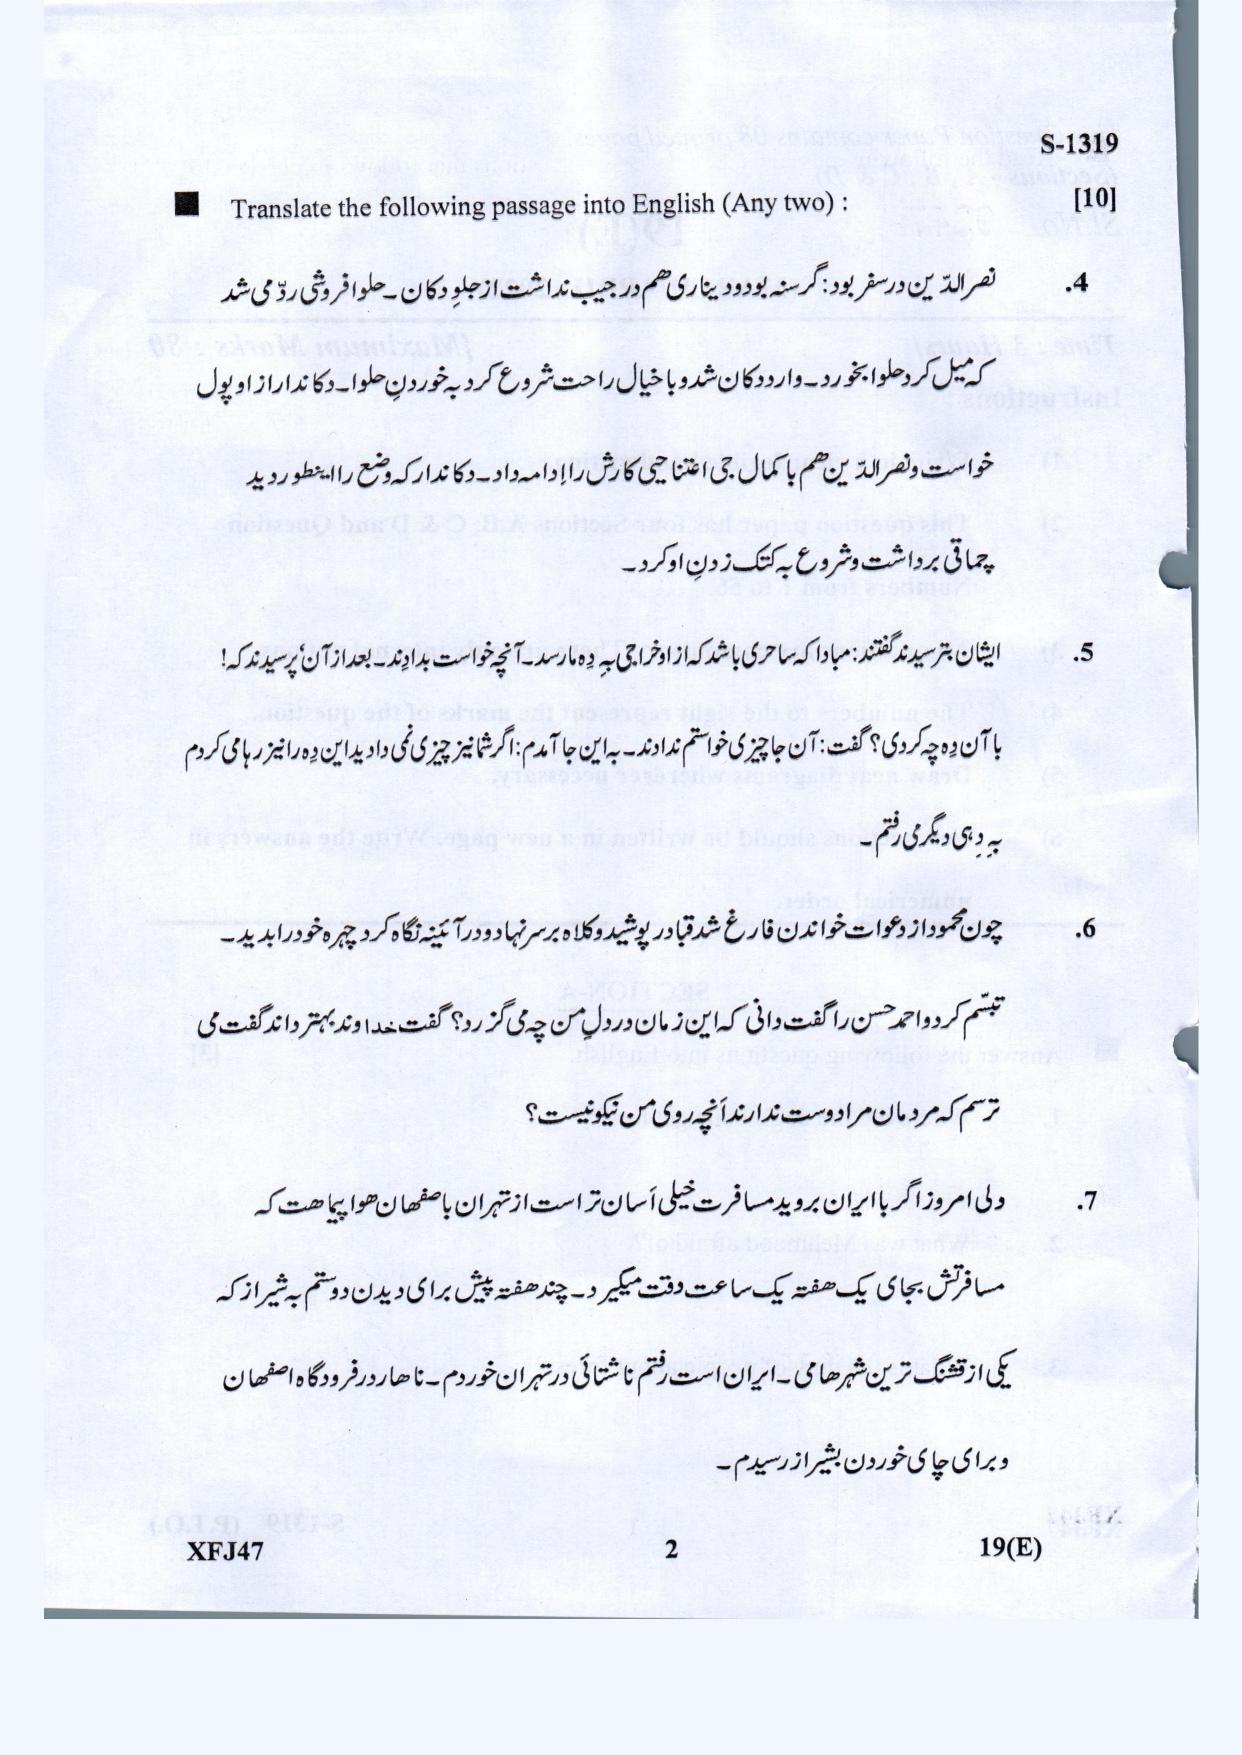 S-1319
■ Translate the following passage into English (Any two) : [10]
4. نصر الدّین در سفر بود: گرسنہ بود و دیناری ھم در جیب نداشت از جلوِ دکان ۔ حلوا فروشی ردّ می شد
کہ میل کرد حلوا بخورد۔ وارد دکان شد و با خیال راحت شروع کرد بہ خوردنِ حلوا۔ دکاندار از او پول
خواست و نصر الدّین ھم با کمال جی اعتنا حیی کارش را ادامہ داد۔ دکاندار کہ وضع را اینطور دید
چماقی برداشت و شروع بہ کتک زدنِ او کرد۔
5. ایشان بترسیدند گفتند: مبادا کہ ساحری باشد کہ از او خراجی بہِ دِہ ما رسد۔ آنچہ خواست بدادِند۔ بعد از آن، پرسیدند کہ!
با آن دِہ چہ کردی؟ گفت: آن جا چیزی خواستم ندادند۔ بہ این جا آمدم: اگر شما نیز چیزی نمی دادید این دِہ را نیز رہا می کردم
بہِ دِہی دیگر می رفتم۔
6. چون محمود از دعوات خواندن فارغ شد قبا در پوشید و کلاہ بر سر نہاد و در آئینہ نگاہ کرد چہرہ خود را بدید۔
تبسّم کرد و احمد حسن را گفت دانی کہ این زمان در دلِ من چہ می گزرد؟ گفت خداوند بہتر داند گفت می
ترسم کہ مردمان مرا دوست ندارند آنچہ روی من نیکو نیست؟
7. ولی امروز اگر با ایران بروید مسافرت خیلی آسان تر است از تہران با صفھان ھوا پیما ھت کہ
مسافرتش بجای یک ھفتہ یک ساعت دقت میگیر د۔ چند ھفتہ پیش برای دیدن دوستم بہ شیراز کہ
یکی از قشنگ ترین شہرھا می۔ ایران است رفتم ناشتائی در تہران خوردم۔ ناھار در فرودگاہ اصفھان
و برای چای خوردن بشیراز رسیدم۔
XFJ47 2 19(E)